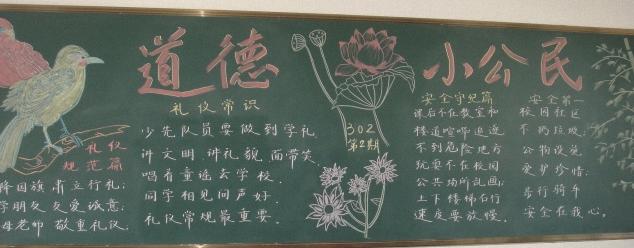 道德
小公民
礼仪常识
少先队员要做到学礼
讲文明.讲礼貌.面带笑.
唱着童谣去学校.
同学相见问声好.
礼仪常规最重要.
礼仪
规范篇
降国旗 肃立行礼;
学朋友 友爱诚意;
母老师 敬重礼仪.
302
第2期
安全守纪篇
课后不在教室和
楼道喧哗追逐
不到危险地方
玩耍不在校园
公共场所乱画;
上下楼梯右行
速度要放慢.
安全第一
校园社区
不扔垃圾.
公物设施
爱护珍惜.
步行骑车
安全在我心.